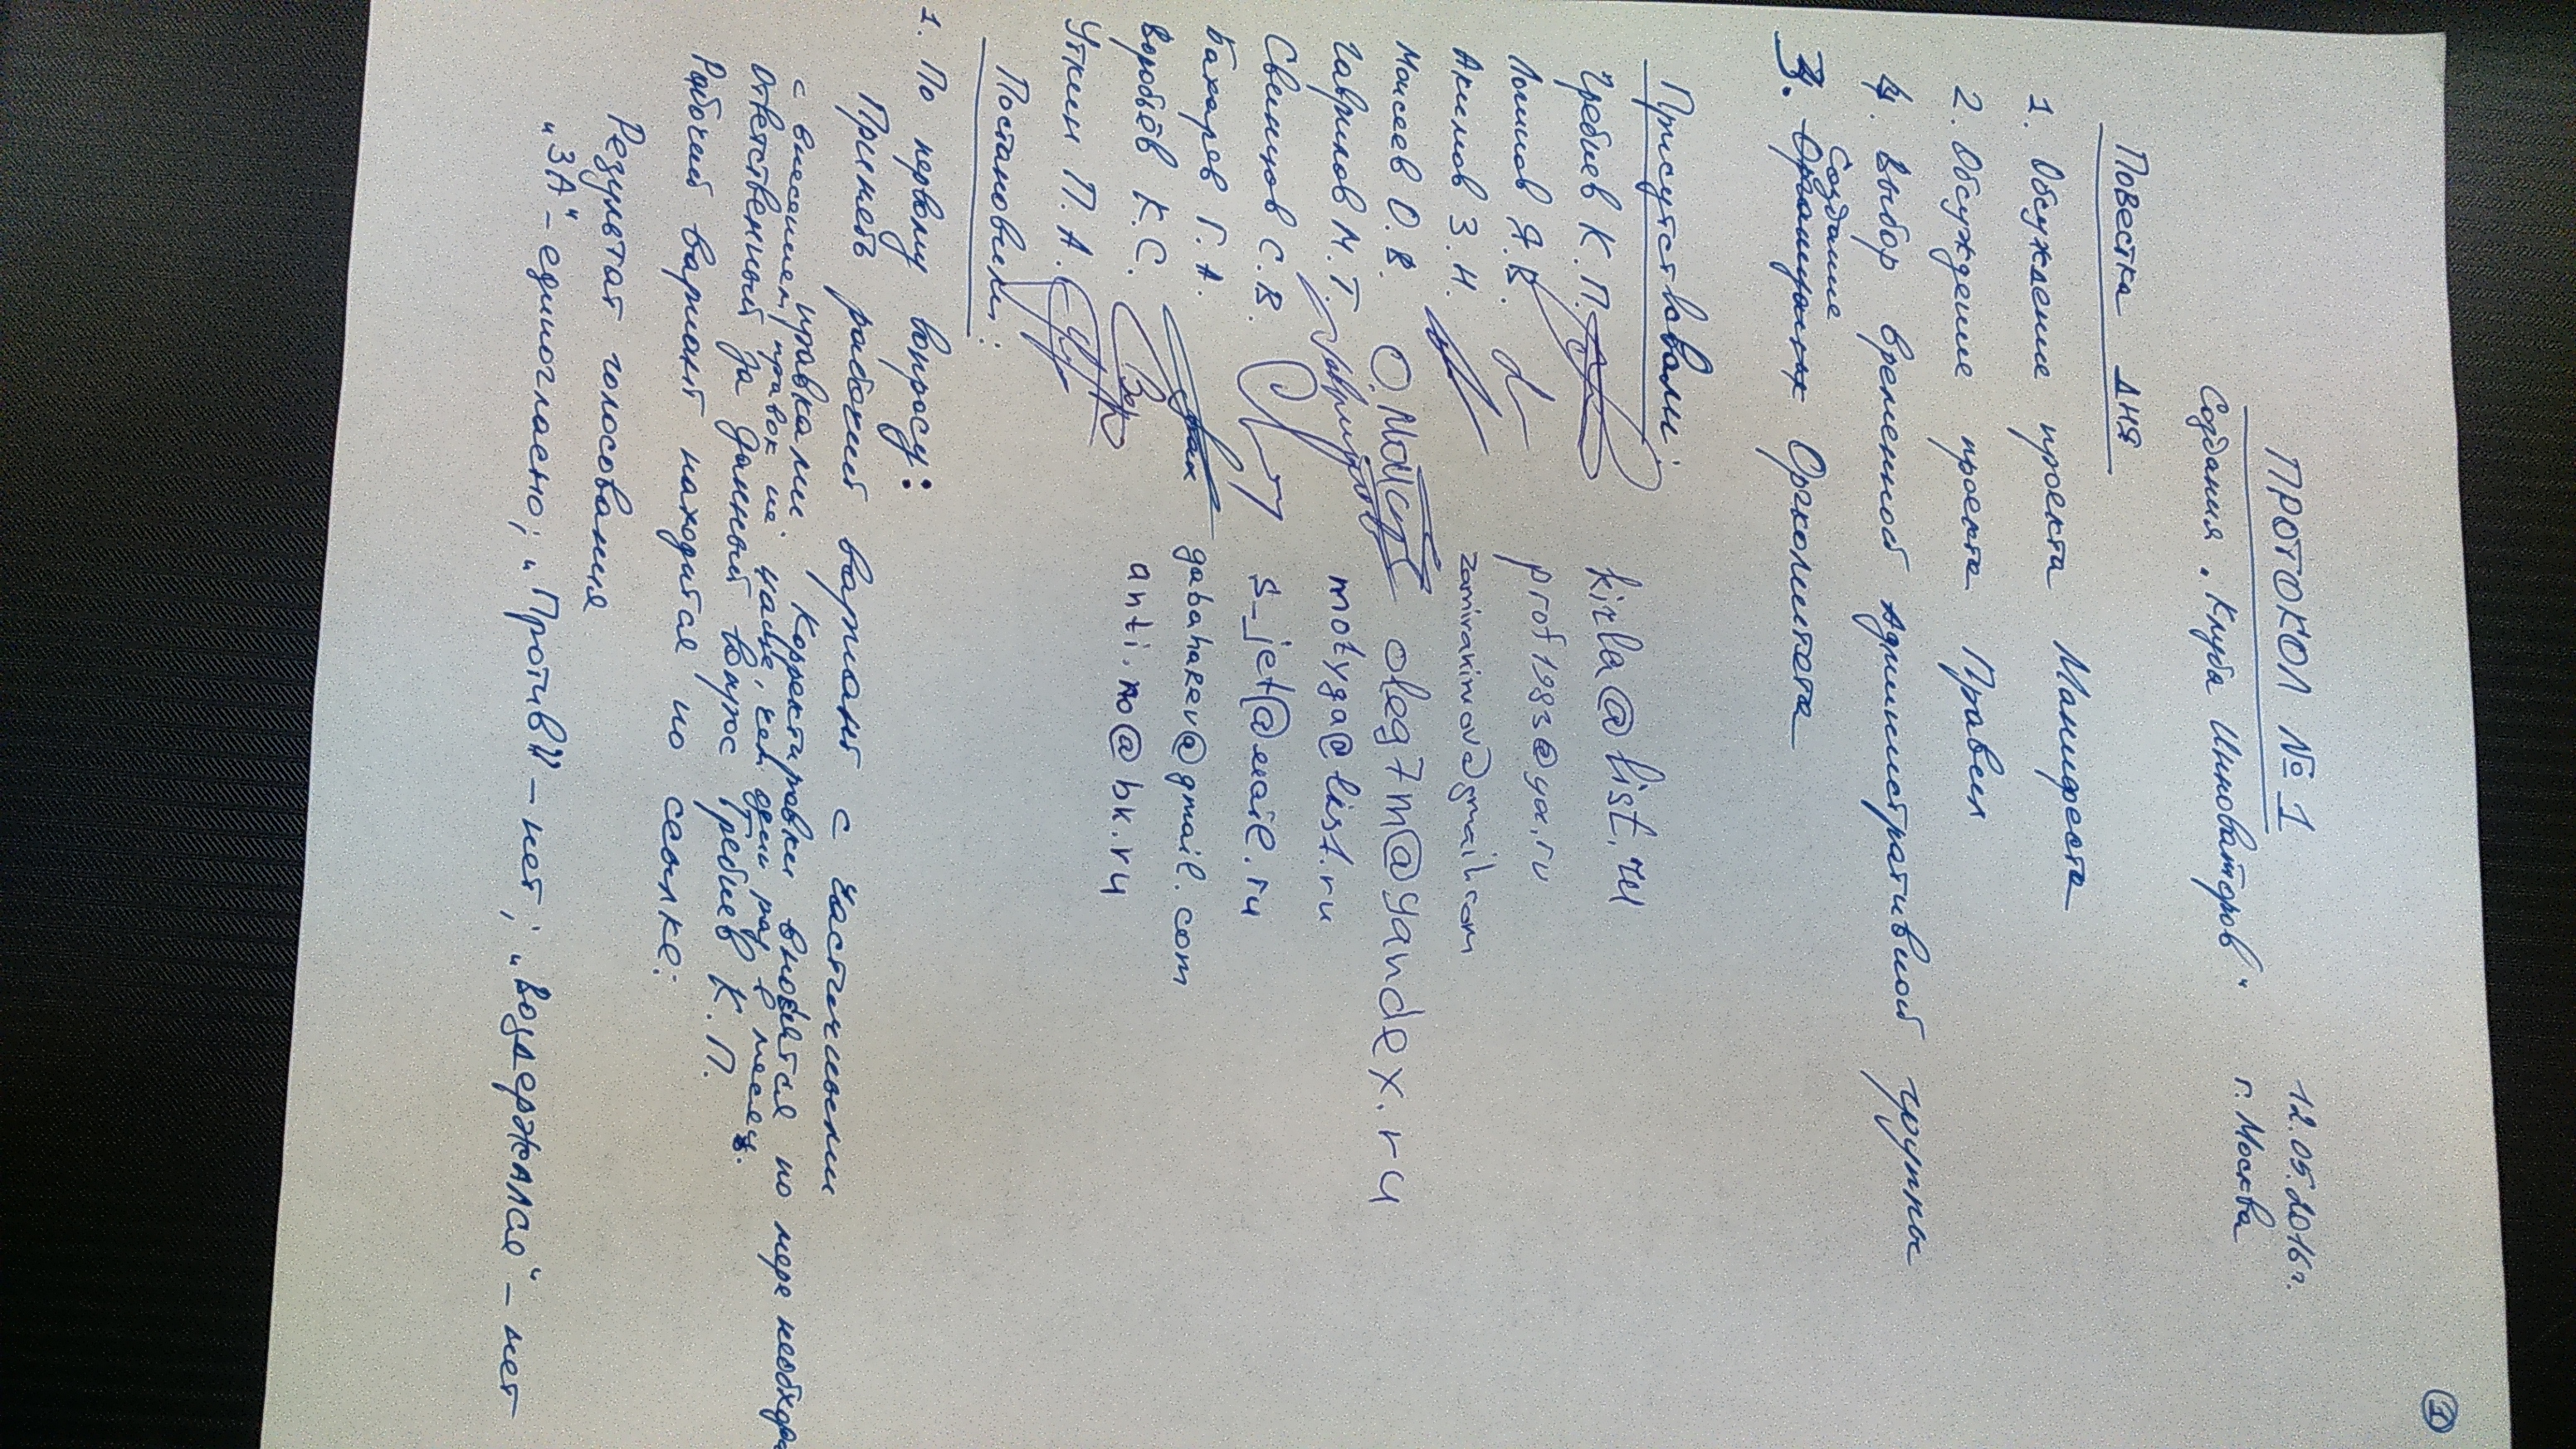 1
ПРОТОКОЛ № 1 12.05.2016 г.
Создания „Клуба Инноваторов“ г. Москва
Повестка дня
1. Обсуждение проекта Манифеста
2. Обсуждение проекта Правил
4. Выбор временной административной группы
Создание
3. Организация Оргкомитета
Присутствовали:
Гребнев К.П. kirla@list.ru
Логинов Я.В. prof1983@ya.ru
Акимов З.Н. zamirakimov@gmail.com
Моисеев О.В. О.Моисе oleg7m@yandex.ru
Гаврилов М.Т. Гаврилов motyga@list.ru
Свинцов С.В. s_jet@mail.ru
Бахарев Г.А. gabaharev@gmail.com
Воробьёв К.С. anti.no@bk.ru
Уткин П.А.
Постановили:
1. По первому вопросу:
Принять рабочий вариант с частичными
правками. Корректировки вносятся по мере необходи
с внесением правок не чаще, чем один раз в месяц.
Ответственный за данный вопрос Гребнев К.П.
Рабочий вариант находится по ссылке:
Результат голосования
„ЗА“ – единогласно; „Против“ – нет; „Воздержался“ – нет